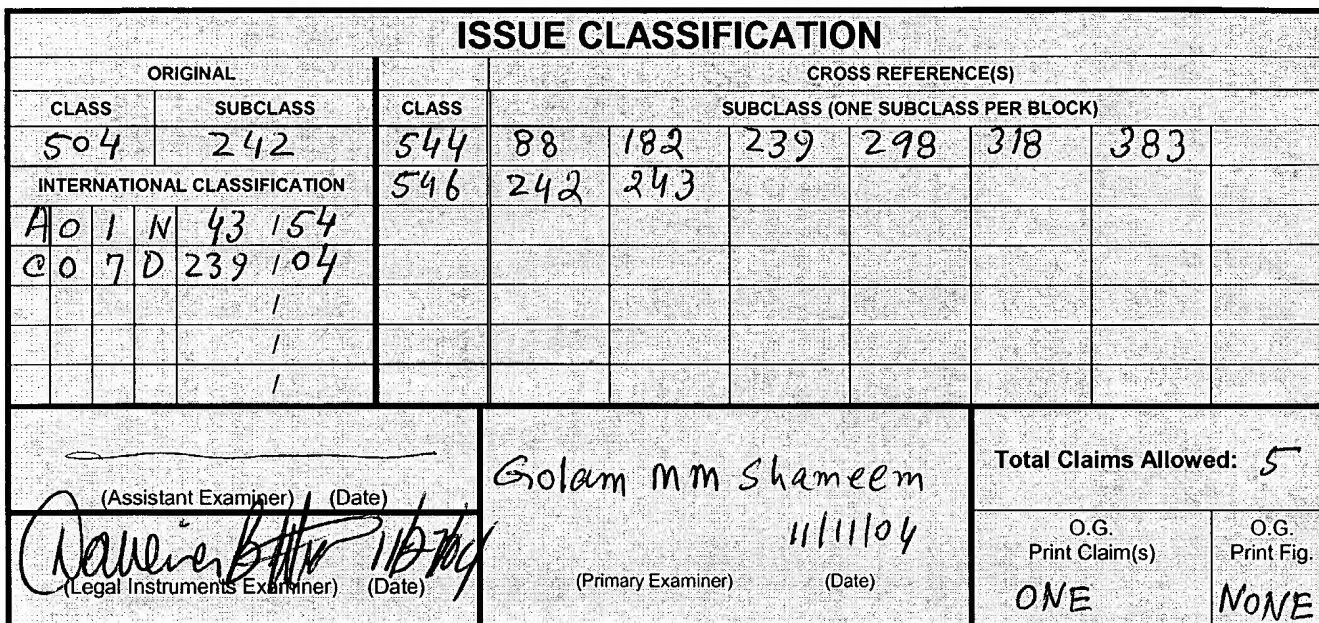 ISSUE CLASSIFICATION
ORIGINAL CROSS REFERENCE(S)
CLASS SUBCLASS CLASS SUBCLASS (ONE SUBCLASS PER BLOCK)
504 242 544 88 182 239 298 318 383
INTERNATIONAL CLASSIFICATION 546 242 243
A 0 1 N 43 / 54
C 0 7 D 239 / 04
/
/
/
Golam MM Shameem
11/11/04
(Assistant Examiner) (Date)
(Legal Instruments Examiner) (Date)
(Primary Examiner) (Date)
Total Claims Allowed: 5
O.G.
Print Claim(s)
ONE
O.G.
Print Fig.
NONE